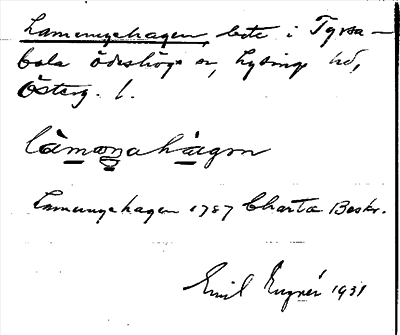 Lamungehagen, bete i Tyrsa-
bola Ödeshög sn, Lysing hd,
Österg. l.
làmoƞahàgon
Lamungehagen 1787 Charta Beskr.
Emil Engnér 1931